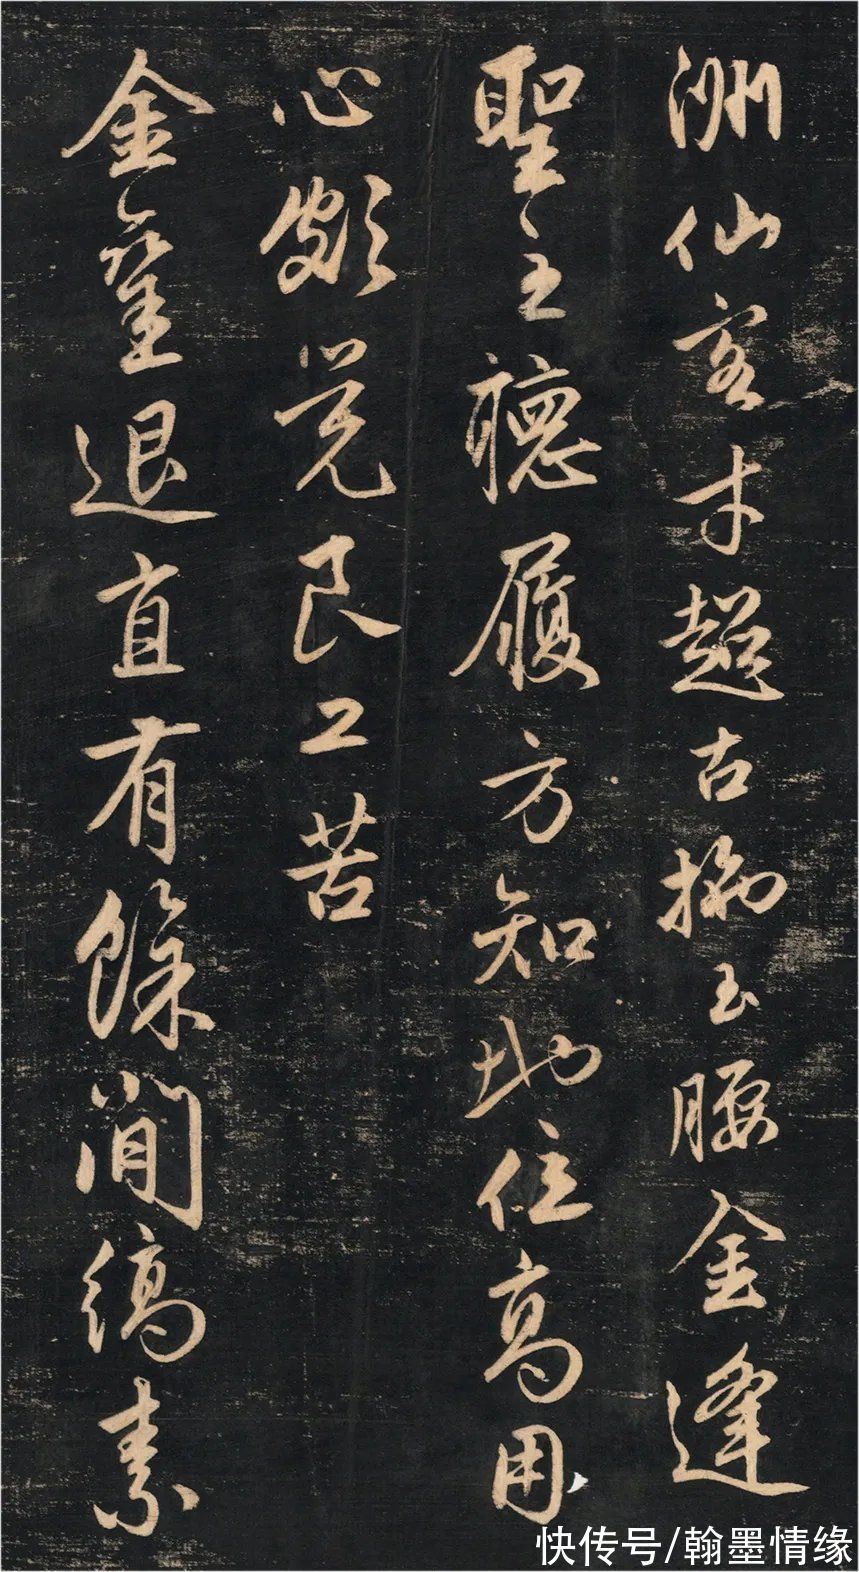 洲仙客才超古拖玉腰金逢
聖主聽履方知地位高用
心頗覺良工苦
金鑾退直有餘閒縞素
快传号/翰墨情缘